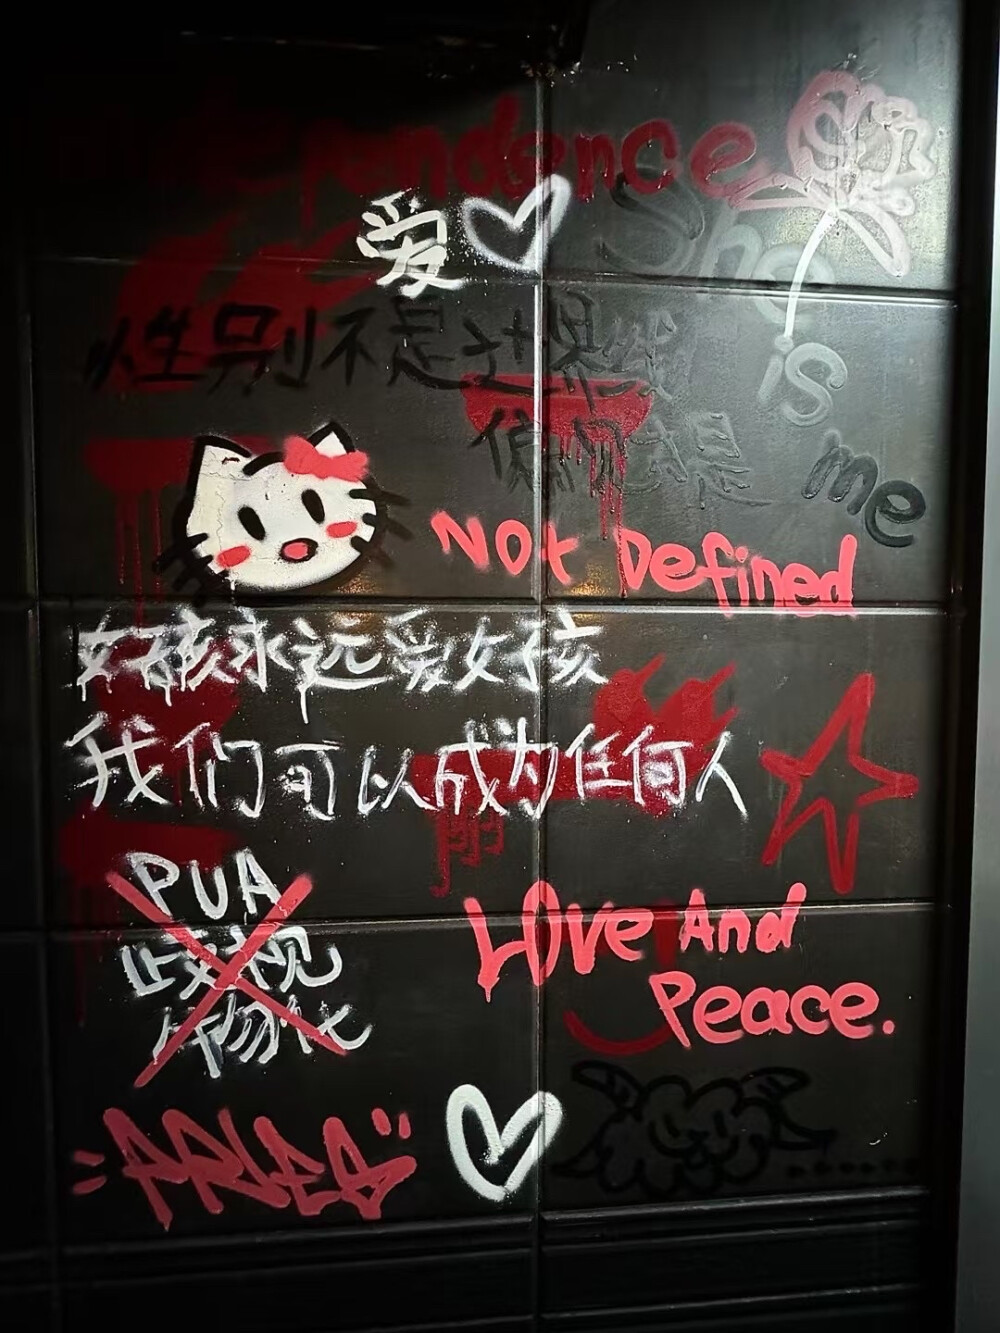 Independence
爱
She
性别不是边界线
偏见才是
is
me
Not Defined
女孩永远爱女孩
我们可以成为任何人
PUA
歧视
物化
Love And
Peace.
ARIES